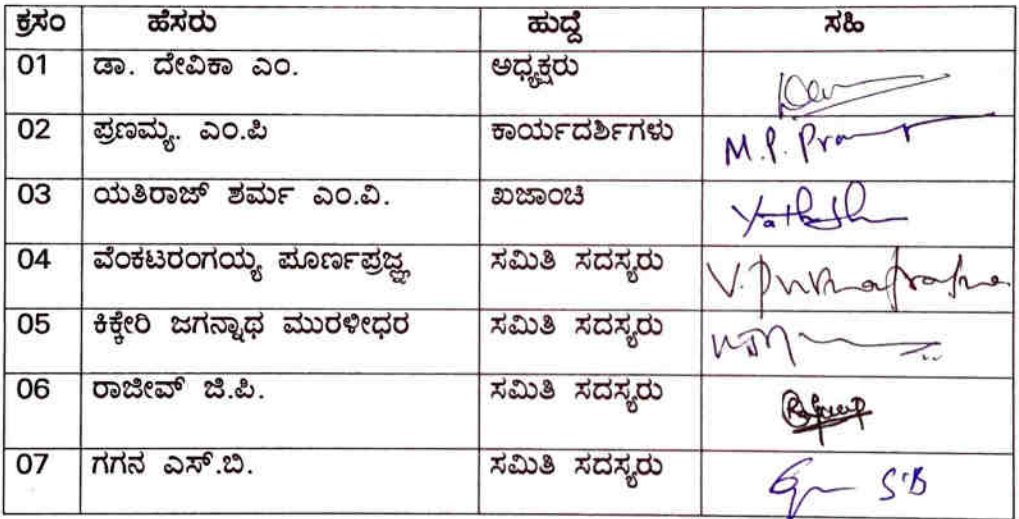 ಕ್ರಸಂ ಹೆಸರು ಹುದ್ದೆ ಸಹಿ
01 ಡಾ. ದೇವಿಕಾ ಎಂ. ಅಧ್ಯಕ್ಷರು
02 ಪ್ರಣಮ್ಯ. ಎಂ.ಪಿ ಕಾರ್ಯದರ್ಶಿಗಳು M.P. Pran
03 ಯತಿರಾಜ್ ಶರ್ಮ ಎಂ.ವಿ. ಖಜಾಂಚಿ
04 ವೆಂಕಟರಂಗಯ್ಯ ಪೂರ್ಣಪ್ರಜ್ಞ ಸಮಿತಿ ಸದಸ್ಯರು
05 ಕಿಕ್ಕೇರಿ ಜಗನ್ನಾಥ ಮುರಳೀಧರ ಸಮಿತಿ ಸದಸ್ಯರು
06 ರಾಜೀವ್ ಜಿ.ಪಿ. ಸಮಿತಿ ಸದಸ್ಯರು
07 ಗಗನ ಎಸ್.ಬಿ. ಸಮಿತಿ ಸದಸ್ಯರು S'B